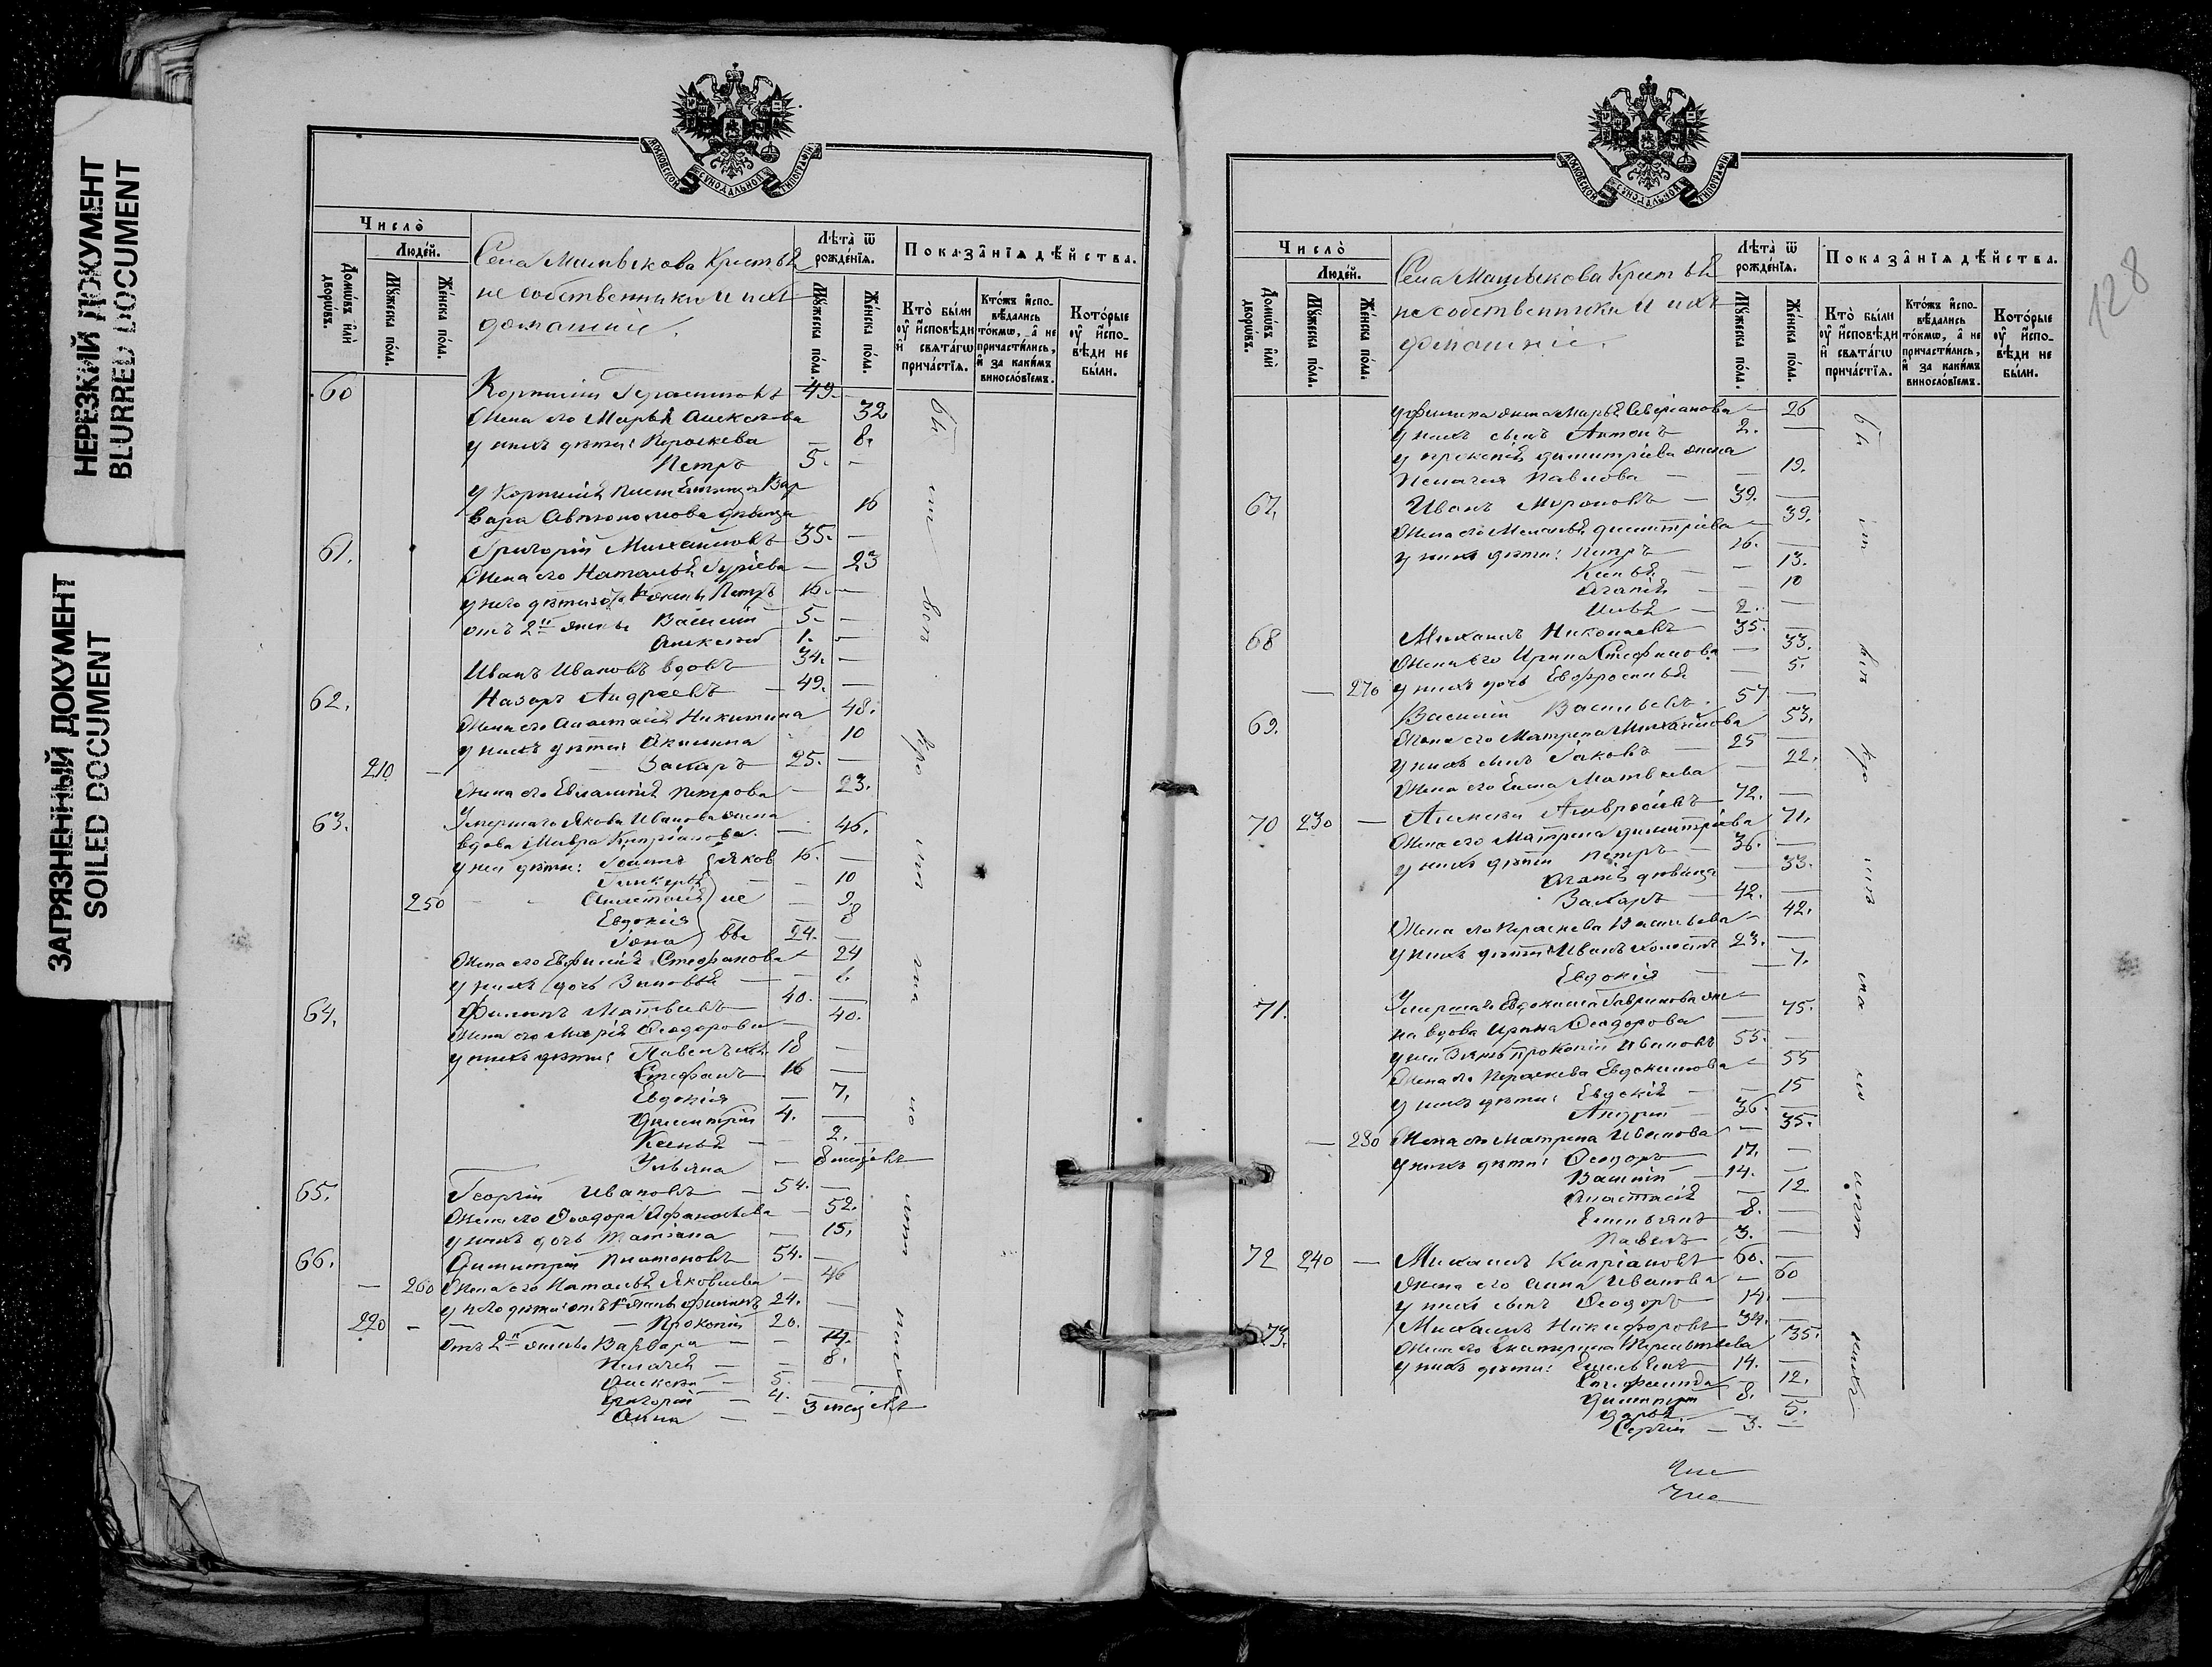 НЕРЕЗКИЙ ДОКУМЕНТ
BLURRED DOCUMENT
ЗАГРЯЗНЕННЫЙ ДОКУМЕНТ
SOILED DOCUMENT
МОСКОВСКОЙ СУНОДАЛЬНОЙ ТИПОГРАФІИ
Число̀
Людей.
Домѡвъ и҆лѝ дворѡвъ.
Мꙋжеска пола.
Женска пола.
Села Матыкова Крестьѣ
не собственники и ихъ
домашніе.
Лѣта̀ ѿ рожденїѧ.
Мꙋжеска пола.
Женска пола.
Показанїѧ дѣйства.
Кто̀ были ᲂу҆ и҆сповѣди и҆ свѧтагѡ причастїѧ.
Ктожъ и҆сповѣдались токмѡ, а҆ не причастились, и҆ за какимъ винословїемъ.
Которые ᲂу҆ и҆сповѣди не были.
60 Корнилій Герасимовъ 49. —
Жена его Марья Алексѣева 32
у нихъ дѣти: Параскева — 8.
Петръ 5. —
у Корнилія племянница Вар
вара Автономова дѣвица 16
61. Григорій Михайловъ 35. —
Жена его Наталья Гуріева — 23
у него дѣти отъ 1й жены Петръ 16. —
отъ 2й жены Василій 5. —
Алексѣй 1. —
Иванъ Ивановъ вдовъ 34. —
62. Назаръ Андреевъ — 49. —
Жена его Анастасія Никитина 48.
у нихъ дѣти: Акилина 10
210 — Захаръ 25. —
Жена его Евлампія Петрова — 23.
63. Умершаго Якова Иванова жена
вдова Мавра Кипріанова — 46.
у нея дѣти: Іоаннъ Яков 16. —
Гликерія — 10
250 Анастасія ле — 9.
Евдокія 8
Іона вы 24. —
Жена его Евфимія Стефанова 24
у нихъ дочь Зиновья — 1.
64. Филипъ Матвѣевъ 40. —
Жена его Марія Ѳеодорова — 40.
у нихъ дѣти: Павелъ 18 —
Стефанъ 16 —
Евдокія — 7.
Димитрій 4. —
Ксенья — 2.
Ульяна — 8 месяцовъ
65. Георгій Ивановъ — 54. —
Жена его Ѳеодора Афанасьева — 52.
у нихъ дочь Татіана — 15.
66. Димитрій Платоновъ 54. —
— 260 Жена его Наталья Яковлева — 46
у него дѣти отъ 1й жены Филипъ 24. —
220 — Прокопій 20. —
Отъ 2й жены Варвара — 14.
Пелагея — 8.
Алексѣй — 5. —
Григорій — 4. —
Анна — 3 месяцовъ
128
МОСКОВСКОЙ СУНОДАЛЬНОЙ ТИПОГРАФІИ
Число̀
Людей.
Домѡвъ и҆лѝ дворѡвъ.
Мꙋжеска пола.
Женска пола.
Села Матыкова Крестьѣ
не собственники и ихъ
домашніе.
Лѣта̀ ѿ рожденїѧ.
Мꙋжеска пола.
Женска пола.
Показанїѧ дѣйства.
Кто̀ были ᲂу҆ и҆сповѣди и҆ свѧтагѡ причастїѧ.
Ктожъ и҆сповѣдались токмѡ, а҆ не причастились, и҆ за какимъ винословїемъ.
Которые ᲂу҆ и҆сповѣди не были.
у Филипа жена Марья Северіанова — 26
у нихъ сынъ Антонъ 2. —
у Прокопія Димитріева жена
Пелагия Павлова — 19.
67. Иванъ Мироновъ — 39. —
Жена его Меланья Димитріева — 39.
у нихъ дѣти: Петръ 16. —
Ксенья — 13.
Агапія — 10
Илья — 2. —
68 Михаилъ Николаевъ 35. —
Жена его Ирина Стефанова — 33.
— 270 у нихъ дочь Евфросинья — 5.
69. Василій Васильевъ 57 —
Жена его Матрена Михайлова 53.
у нихъ сынъ Іаковъ — 25 —
Жена его Елена Матвѣева — 22.
70 230 — Алексѣй Амвросіевъ — 72. —
Жена его Матрена Димитріева 71.
у нихъ дѣти Петръ — 36. —
Агапія дѣвица — 33.
Захаръ — 42. —
Жена его Параскева Васильева — 42.
у нихъ дѣти: Иванъ холостъ 23. —
Евдокія — 7.
71. Умершаго Евдокима Гаврилова же
на вдова Ирина Ѳеодорова — 75.
у нея зять Прокопій Ивановъ 55. —
Жена его Параскева Евдокимова — 55
у нихъ дѣти: Евдокія — 15
Андрей — 36. —
— 280 Жена его Матрена Иванова — 35.
у нихъ дѣти: Ѳеодоръ 17. —
Василій — 14. —
Анастасія — 12
Емельянъ 8. —
Павелъ 3. —
72 240 — Михаилъ Кипріановъ 60. —
Жена его Анна Иванова — 60
у нихъ сынъ Ѳеодоръ — 14. —
73. Михаилъ Никифоровъ 34. —
Жена его Екатерина Терентьева 35.
у нихъ дѣти: Емельянъ — 14. —
12.
Димитрій 8. —
Дарья — 5.
Сергій — 3. —